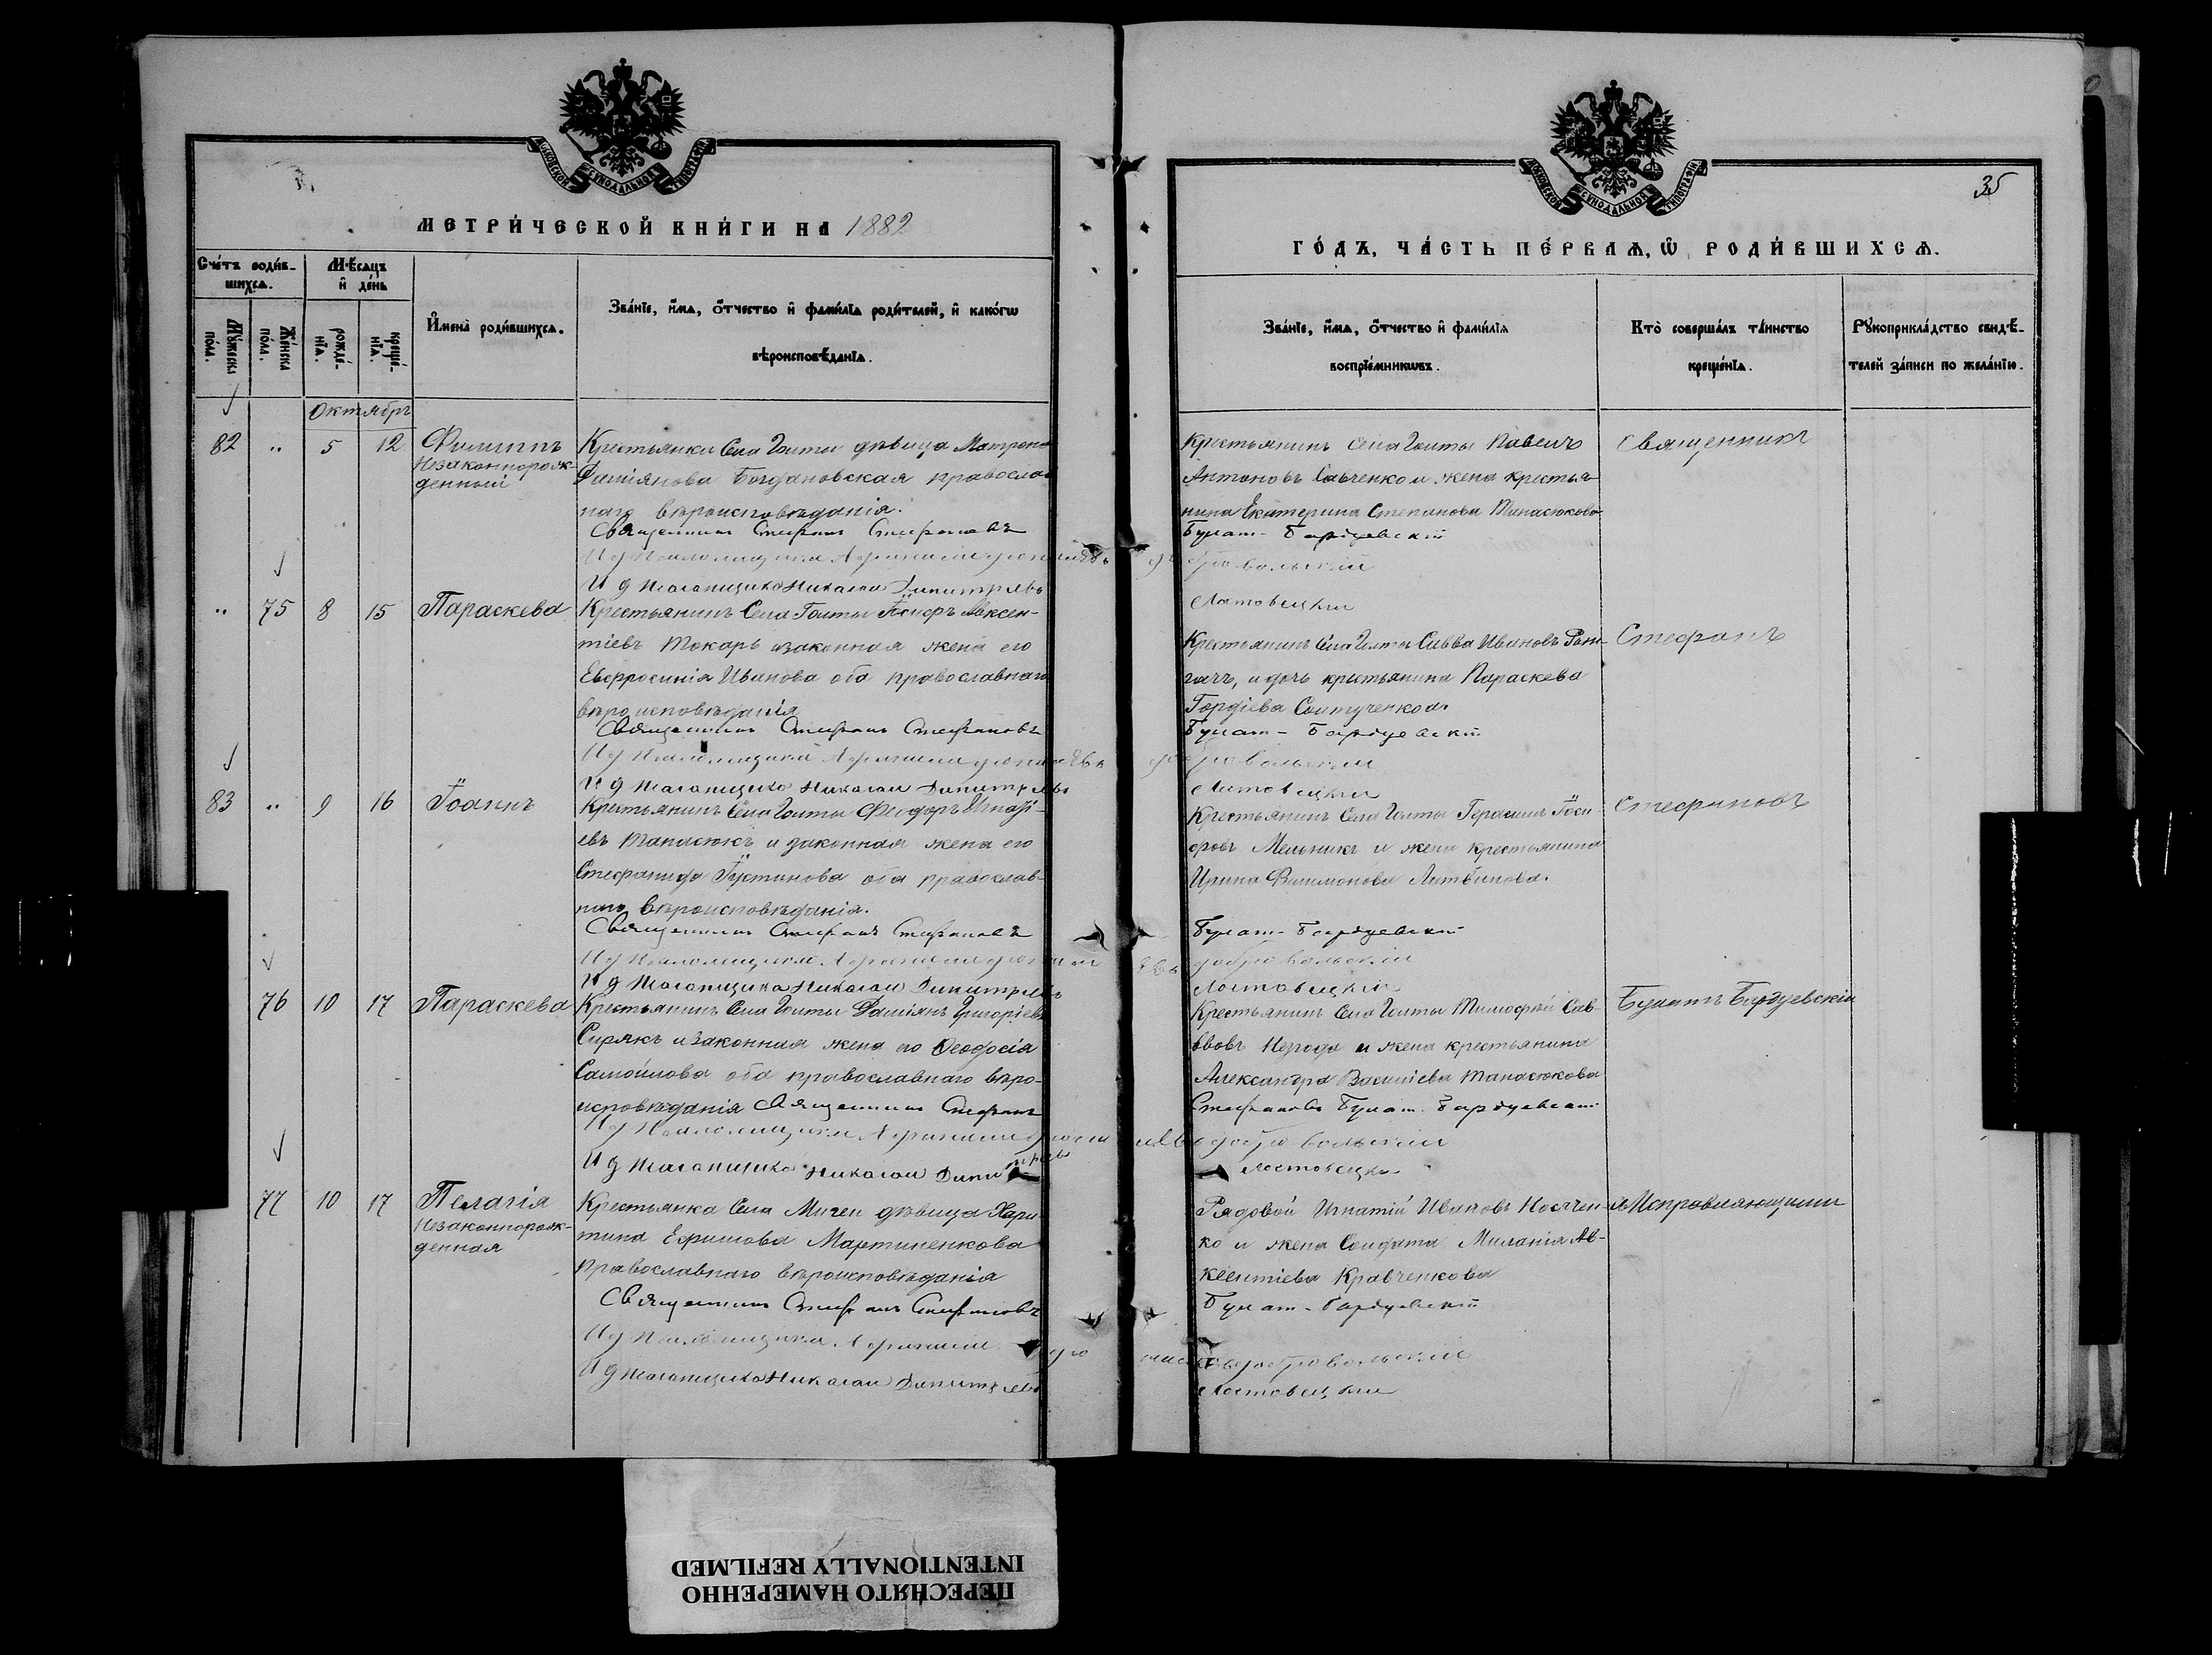 МОСКОВСКОЙ СѴНОДАЛЬНОЙ ТИПОГРАФІИ
МЕТРИ́ЧЕСКОЙ КНИ́ГИ НА 1882
Сче́тъ роди́в-
шихсѧ.
Мꙋ́жеска по́ла.
Же́нска по́ла.
Мѣ́сѧцъ
и҆ де́нь
рожде́-
нїѧ.
креще́-
нїѧ.
И҆мена̀ роди́вшихсѧ.
Зва́нїе, и҆́мѧ, ѻ҆́тчество и҆ фами́лїѧ роди́телей, и҆ како́гѡ
вѣроисповѣ́данїѧ.
Октябрь
82 " 5 12 Филиппъ
Незаконнорож-
денный
Крестьянки Села Голты дѣвица Матрона
Даміянова Богдановская православ
наго вѣроисповѣданія.
Священникъ Стефанъ Стефановъ
И д Псаломщика
И д псаломщика Николай Димитріевъ
" 75 8 15 Параскева
Крестьянинъ Села Голты Іосифъ Авксен-
тіевъ Токарь изаконная жена его
Евфросинія Иванова оба православнаго
вѣроисповѣданія
Священникъ Стефанъ Стефановъ
И д Псаломщика
И д псаломщика Николай Димитріевъ
83 " 9 16 Іоаннъ
Крестьянинъ Села Голты Феодоръ Игнаті-
евъ Танасюкъ и законная жена его
Стефанида Іустинова оба православ-
наго вѣроисповѣданія.
Священникъ Стефанъ Стефановъ
И д Псаломщика
И д псаломщика Николай Димитріевъ
76 10 17 Параскева
Крестьянинъ Села Голты Даміянъ Григоріевъ
Сирякъ изаконная жена его Феодосія
Самойлова оба православнаго вѣро-
исповѣданія Священникъ Стефанъ
И д Псаломщика
И д псаломщика Николай Димитріевъ
77 10 17 Пелагія
Незаконнорож-
денная
Крестьянка Села Мигеи дѣвица Хари
тина Ефимова Мартиненкова
православнаго вѣроисповѣданія
Священникъ Стефанъ Стефановъ
И д Псаломщика
И д псаломщика Николай Димитріевъ
МОСКОВСКОЙ СѴНОДАЛЬНОЙ ТИПОГРАФІИ
35
ГО́ДЪ, ЧА́СТЬ ПЕ́РВАѦ, Ѡ҆ РОДИ́ВШИХСѦ.
Зва́нїе, и҆́мѧ, ѻ҆́тчество и҆ фами́лїѧ
воспрїе́мникѡвъ.
Кто̀ соверша́лъ та́инство
креще́нїѧ.
Рꙋкоприкла́дство свидѣ́-
телей за́писи по жела́нїю.
Крестьянинъ Села Голты Павелъ
Антоновъ Савченко и жена крестья-
нина Екатерина Степанова Танасюкова
Булат-Бардуевскій
Добровольскій
Лотовецкій
Священникъ
Крестьянинъ Села Голты Савва Ивановъ
и дочь крестьянина Параскева
Гордіева
Булат-Бардуевскій
Добровольскій
Лотовецкій
Стефанъ
Крестьянинъ Села Голты Герасимъ Іоси-
фовъ Мельникъ и жена крестьянина
Ирина Филимонова Литвинова.
Булат-Бардуевскій
Добровольскій
Лотовецкій
Стефановъ
Крестьянинъ Села Голты Тимофей Сав-
вовъ Нерода и жена крестьянина
Александра Василіева Танасюкова
Стефановъ Булат-Бардуевскій
Добровольскій
Лотовецкій
Булатъ Бардуевскій
Рядовой Игнатій Ивановъ Носачен-
ко и жена Солдата Миланія Ав-
ксентіева Кравченкова
Булат-Бардуевскій
Добровольскій
Лотовецкій
Исправляющими
ПЕРЕСНЯТО НАМЕРЕННО
INTENTIONALLY REFILMED